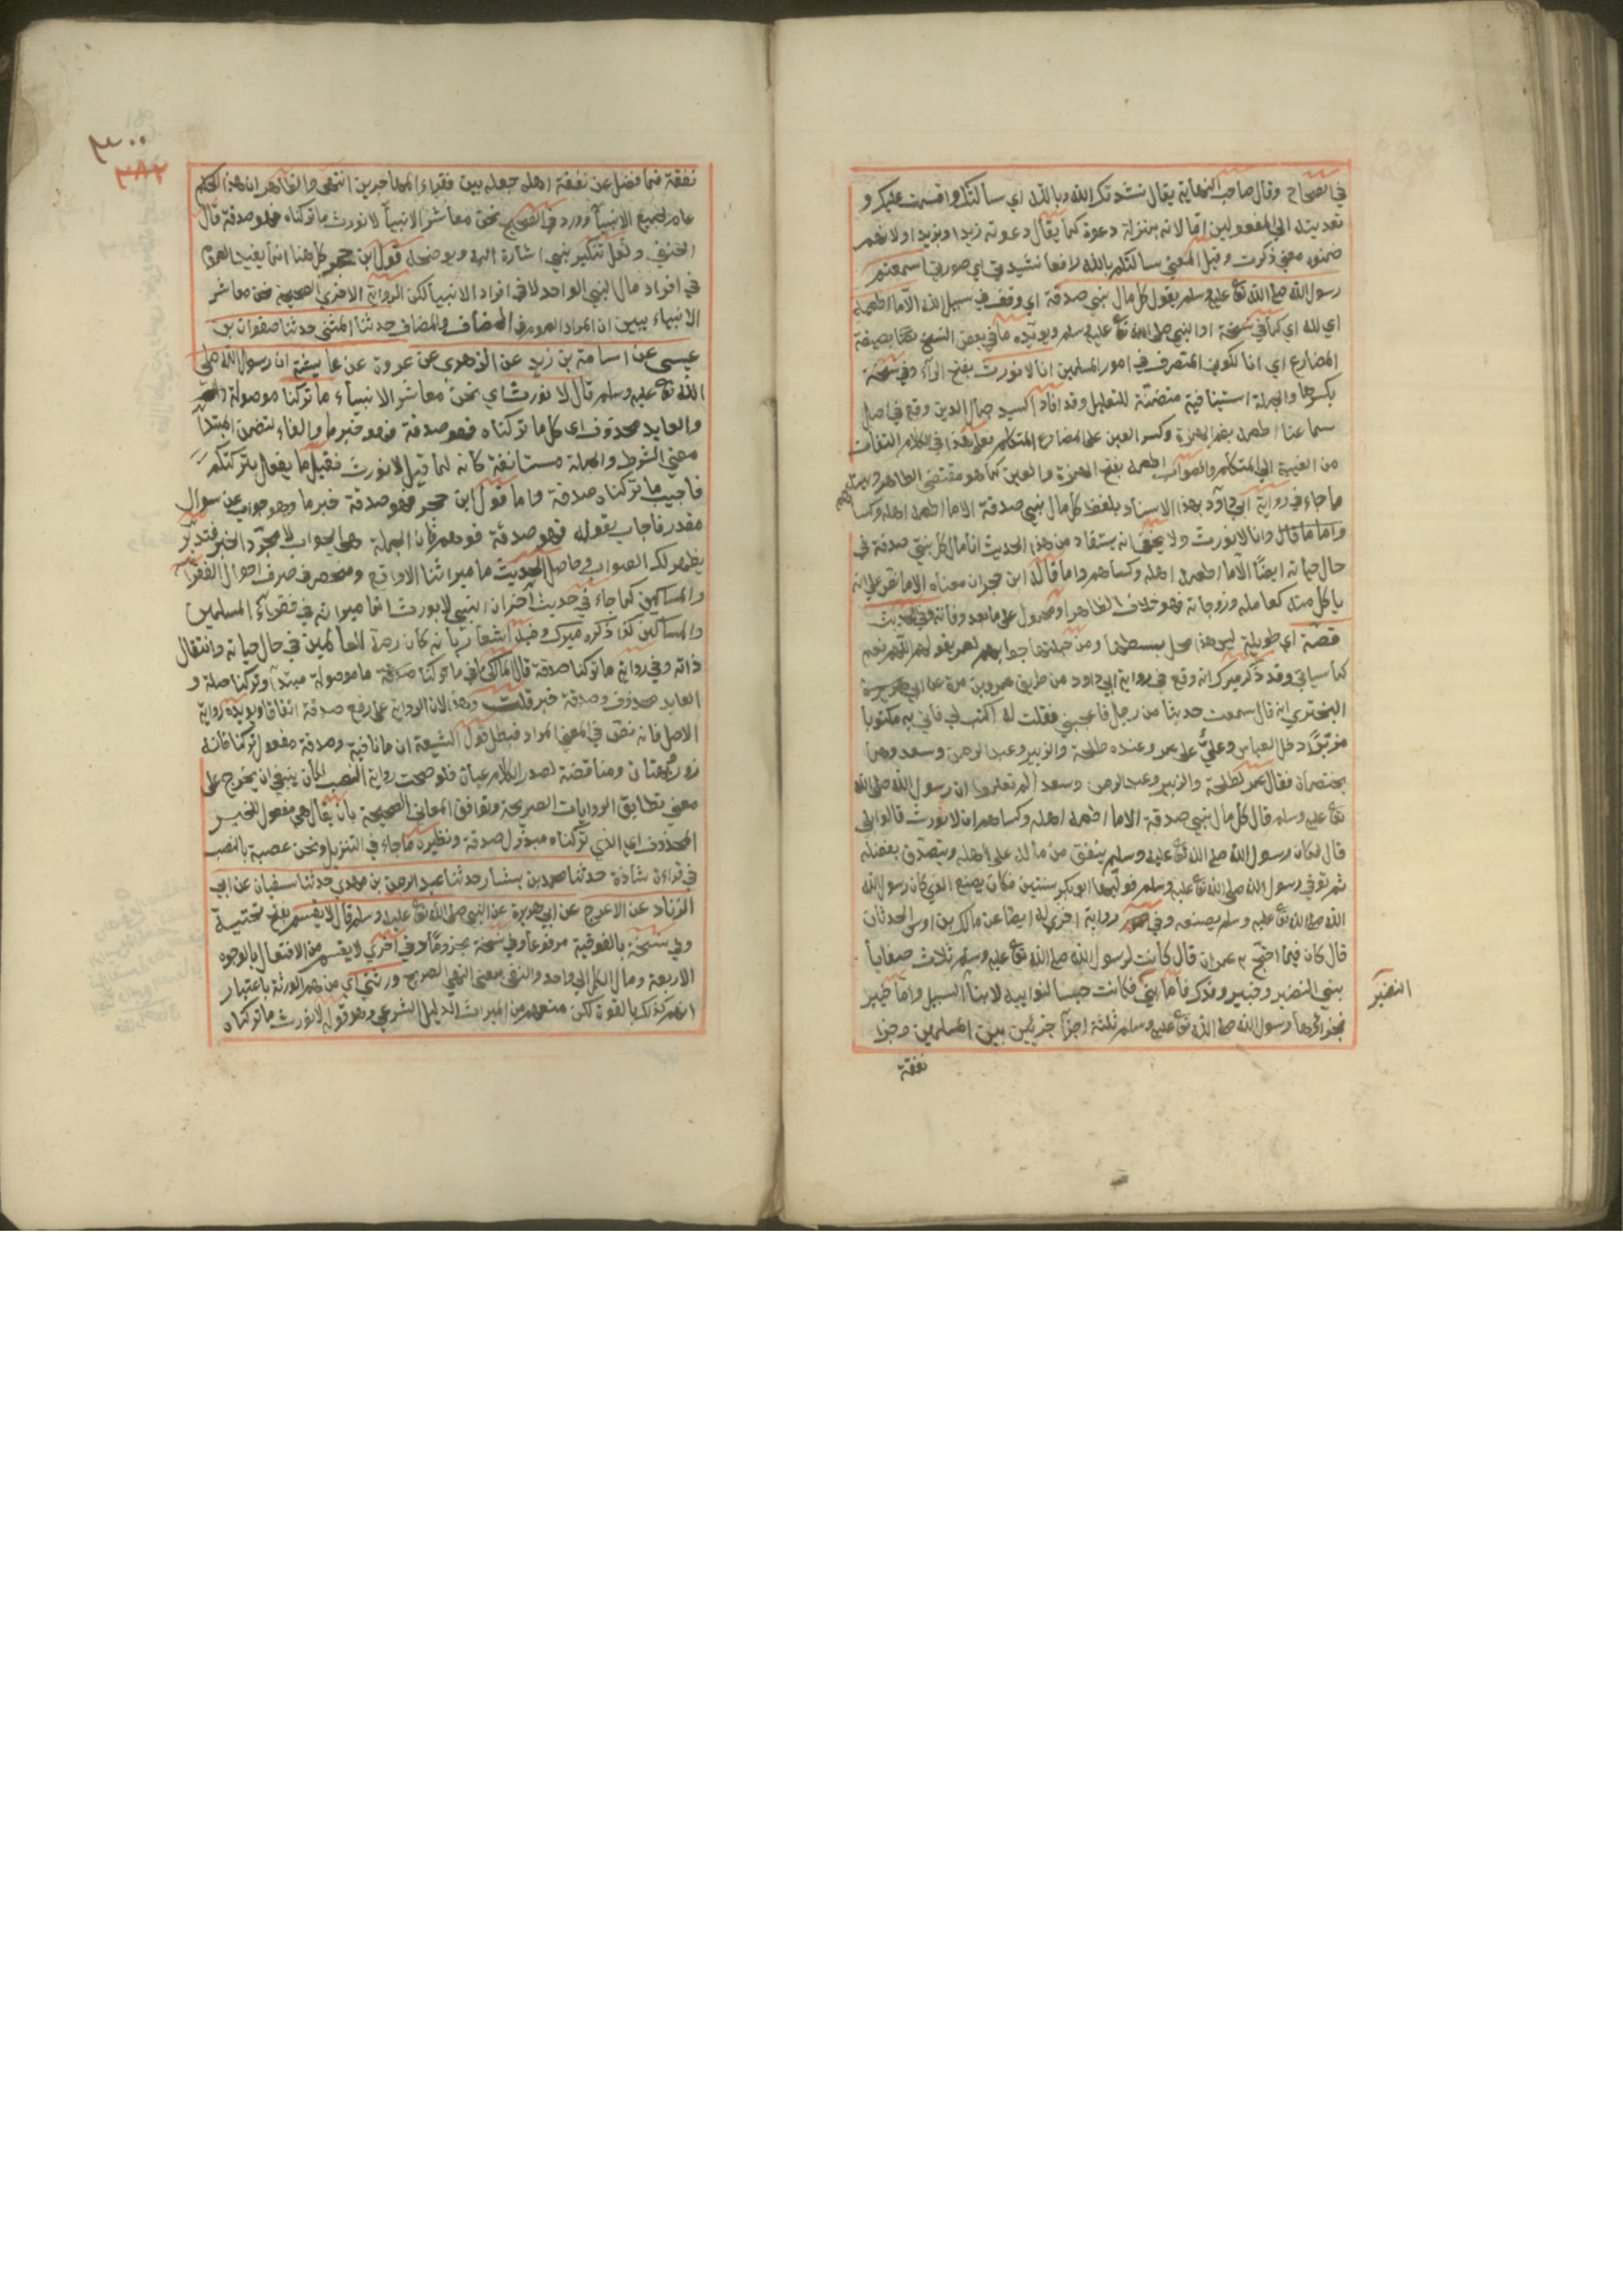 في الصحاح وقال صاحب النهاية يقال نشدتك الله وبالله اي سالتك واقسمت عليك و
تعديته الى المفعولين اما لانه بمنزلة دعوت كما يقال دعوته زيدا وبزيد او لانهم
ضمنوه معنى ذكرت وقيل المعنى سالتكم بالله رافعا نشيدتي اي صوتي اسمعتم
رسول الله صلى الله تع عليه وسلم يقول كل مال نبي صدقة اي وقف في سبيل الله الا ما اطعمه
اي لله اي كما في نسخة او النبي صلى الله تع عليه وسلم ويويده ما في بعض النسخ بصيغة
المضارع اي انا لكوني المتصرف في امور المسلمين انا لا نورث بفتح الراء وفي نسخة
بكسرها والجملة استينافية متضمنة للتعليل وقد افاد السيد جمال الدين وقع في اصل
سماعنا اطعمه بضم الهمزة وكسر العين على المضارع المتكلم فعلى هذا في الكلام التفات
من الغيبة الى المتكلم والصواب اطعمه بفتح الهمزة والعين كما هو مقتضى الظاهر
ما جاء في رواية ابي داود بهذا الاسناد بلفظ كل مال نبي صدقة الا ما اطعمه اهله وكساهم
واما ما قال وانا لا نورث ولا يخفى انه يستفاد من هذا الحديث ان مال كل نبي صدقة في
حال حياته ايضا الا ما اطعمه اهله وكساهم واما قاله ابن حجر ان معناه الا ما نص على انه
ياكل منه كعامله وزوجاته فهو خلاف الظاهر او محمول على ما بعد وفاته وفي الحديث
قصة اي طويلة ليس هذا محل بسطها ومن جملتها جوابهم لعمر بقولهم اللهم نعم
كما سياتي وقد ذكر ميرك انه وقع في رواية ابي داود من طريق عمرو بن مرة عن ابي
البختري انه قال سمعت حديثا من رجل فاعجبني فقلت له اكتب لي فاتي به مكتوبا
مزبرا دخل العباس وعلي على عمر وعنده طلحة والزبير وعبد الرحمن وسعد وهما
يختصمان فقال عمر لطلحة والزبير وعبد الرحمن وسعد الم تعلموا ان رسول الله صلى الله
تع عليه وسلم قال كل مال نبي صدقة الا ما اطعمه اهله وكساهم انا لا نورث قالوا بلى
قال فكان رسول الله صلى الله تع عليه وسلم ينفق من ماله على اهله ويتصدق بفضله
ثم توفي رسول الله صلى الله تع عليه وسلم فوليها ابو بكر سنتين فكان يصنع الذي كان رسول الله
الله صلى الله تع عليه وسلم يصنعه وفي رواية اخرى له ايضا عن مالك بن اوس الحدثان
قال كان فيما احتج به عمر ان قال كانت لرسول الله صلى الله تع عليه وسلم ثلاث صفايا
بني النضير وخيبر وفدك فاما بني فكانت حبسا لنوايبه لابنا السبيل واما خيبر
النضير
فجزاها رسول الله صلى الله تع عليه وسلم ثلثة اجزا جزئين بين المسلمين وجزا
نفقة
٣٠٠
٣٨٢
نفقة فما فضل عن نفقة اهله جعله بين فقراء المهاجرين انتهى والظاهر ان هذا الحكم
عام لجميع الانبيا وورد في الصحيح نحن معاشر الانبيا لا نورث ما تركناه فهو صدقة قال
الحنفي ولعل تنكير نبي اشارة اليه ويوضحه قول ابن حجر كل هنا انما يفيد العموم
في افراد مال النبي الواحد لا في افراد الانبيا لكن الرواية الاخرى الصحيحة نحن معاشر
الانبياء يبين ان المراد العموم في المضاف والمضاف حدثنا المثنى حدثنا صفوان بن
عيسى عن اسامة بن زيد عن الزهري عن عروة عن عايشة ان رسول الله صلى
الله تع عليه وسلم قال لا نورث اي نحن معاشر الانبياء ما تركنا موصولة
والعايد محذوف اي كل ما تركناه فهو صدقة فهو خبر ما والفاء لتضمن المبتدا
معنى الشرط والجملة مستانفة كانه لما قيل لا نورث فقيل ما يفعل بتركتكم
فاجيب ما تركناه صدقة واما قول ابن حجر فهو صدقة خبر ما وهو جواب عن سوال
مقدر فاجاب بقوله فهو صدقة فوهم فان الجملة هي الجواب لا مجرد الخبر فتدبر
يظهر لك الصواب وحاصل الحديث ما ميراثنا الا واقع ومنحصر في صرف احوال الفقرا
والمساكين كما جاء في حديث اخر ان النبي لا يورث انما ميراثه في فقراء المسلمين
والمساكين كذا ذكره ميرك وفيه اشعار بانه كان رحمة للعالمين في حال حياته وانتقال
ذاته وفي رواية ما تركنا صدقة قال المالكي ما في ما تركنا صدقة ما موصولة مبتدا وتركنا صلة و
العايد محذوف وصدقة خبر قلت وهذا لان الرواية على رفع صدقة اتفاقا ويويده رواية
الاصل فانه نص في المعنى المراد فبطل قول الشيعة ان ما نافية وصدقة مفعول تركنا فانه
زور وبهتان ومناقضة لصدر الكلام عيان فلو صحت رواية النصب لكان ينبغي ان يخرج على
معنى تطابق الروايات الصريحة وتوافق المعاني الصحيحة بان يقال هي مفعول للخبر
المحذوف اي الذي تركناه مبذول صدقة ونظيره ما جاء في التنزيل ونحن عصبة بالنصب
في قراءة شاذة حدثنا محمد بن بشار حدثنا عبد الرحمن بن مهدي حدثنا سفيان عن ابي
الزناد عن الاعرج عن ابي هريرة عن النبي صلى الله تع عليه وسلم قال لا يقسم بفتح تحتية
وفي نسخة بالفوقية مرفوعا وفي نسخة مجزوما وفي اخرى لا يقتسم من الافتعال بالوجوه
الاربعة ومال الكل الى واحد والنفي بمعنى النهي الصريح ورثتي اي من هم الورثة باعتبار
انهم كذلك بالقوة لكن منعهم من الميراث الدليل الشرعي وهو قوله لا نورث ما تركناه